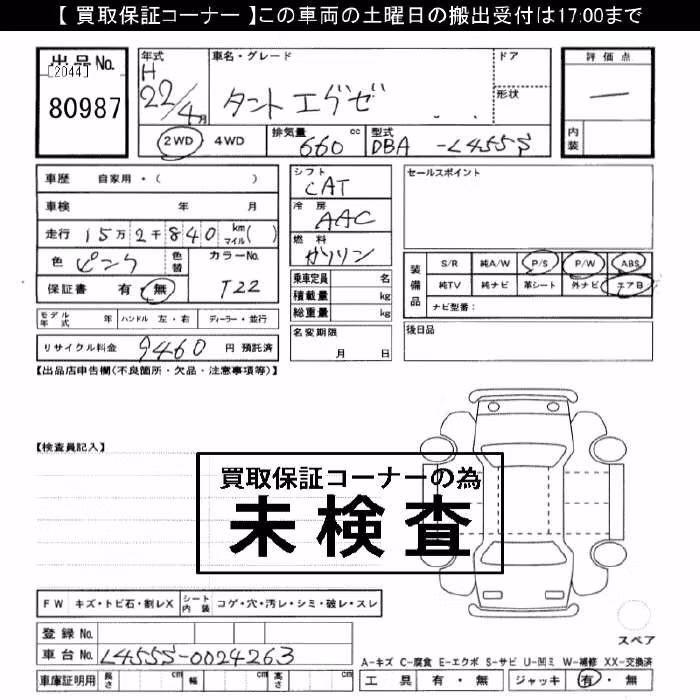 【 買取保証コーナー 】この車両の土曜日の搬出受付は17:00まで
出品No. 年式 車名・グレード ドア 評価点
[2044] H
80987 22/4月 タント エグゼ 形状 一
内装
2WD 4WD 排気量 660 cc 型式 DBA -L455S
車歴 自家用・( ) シフト CAT セールスポイント
車検 年 月 冷房 AAC
走行 15万2千840 km マイル( ) 燃料 ガソリン
色 ピンク 色替 カラーNo. 装備品 S/R 純A/W P/S P/W ABS
保証書 有・無 T22 乗車定員 名 純TV 純ナビ 革シート 外ナビ エアB
積載量 kg ナビ型番:
モデル年式 年 ハンドル 左・右 ディーラー・並行 総重量 kg 後日品
リサイクル料金 9460 円 預託済 名変期限 月 日
【出品店申告欄(不良箇所・欠品・注意事項等)】
【検査員記入】
買取保証コーナーの為
未検査
FW キズ・トビ石・割レX シート内装 コゲ・穴・汚レ・シミ・破レ・スレ
登録No. スペア
車台No. L455S-0024263
A-キズ C-腐食 E-エクボ S-サビ U-凹ミ W-補修 XX-交換済
車庫証明用 長さ cm 幅 cm 高さ cm 工具 有・無 ジャッキ 有・無